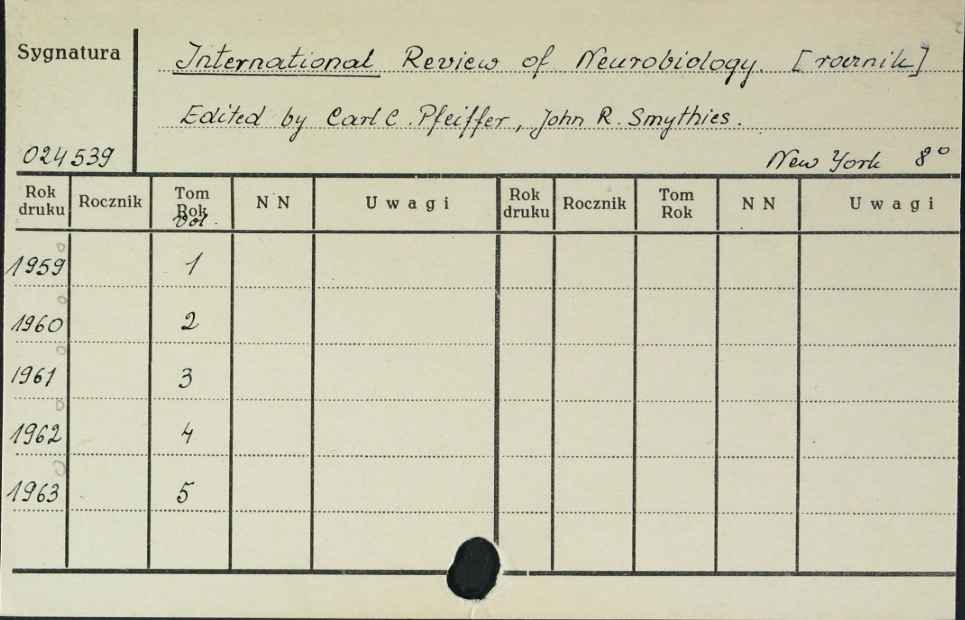 Sygnatura
International Review of Neurobiology. [rocznik]
Edited by Carl C. Pfeiffer, John R. Smythies.
024539
New York 8°
Rok druku Rocznik Tom Rok Vol. N N Uwagi Rok druku Rocznik Tom Rok N N Uwagi
1959 1
1960 2
1961 3
1962 4
1963 5